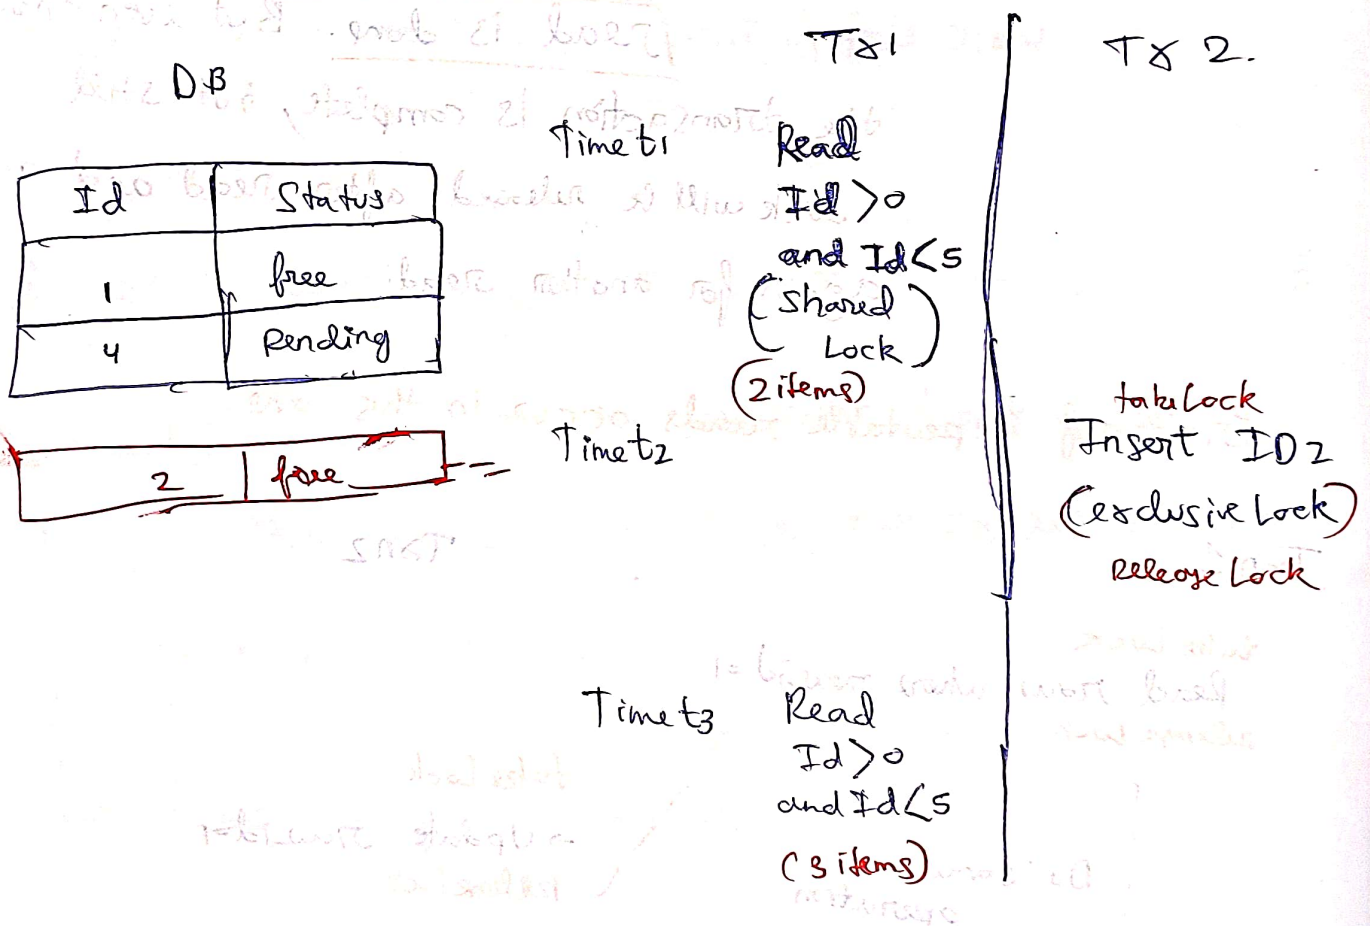 DB
Id Status
1 free
4 Pending
2 free
Tx1 Tx 2.
Time t1 Read
Id >0
and Id<5
(Shared
Lock)
(2 items)
Time t2
take Lock
Insert ID2
(exclusive Lock)
Release Lock
Time t3 Read
Id>0
and Id<5
(3 items)